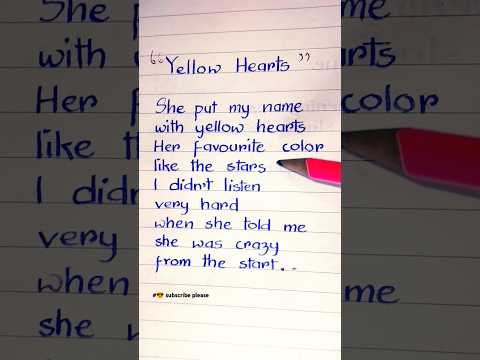 “Yellow Hearts”
She put my name
with yellow hearts
Her favourite color
like the stars
I didn't listen
very hard
when she told me
she was crazy
from the start...
#😎 subscribe please